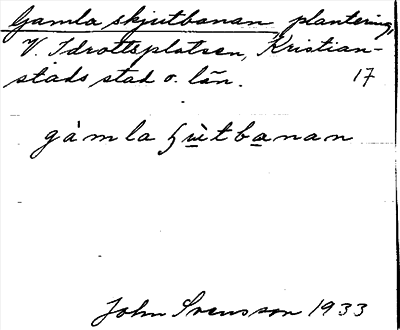 Gamla skjutbanan, plantering,
V. Idrottsplatsen, Kristian-
stads stad o. län. 17
gàmla ʃu̲ìtba̲nan
John Svensson 1933